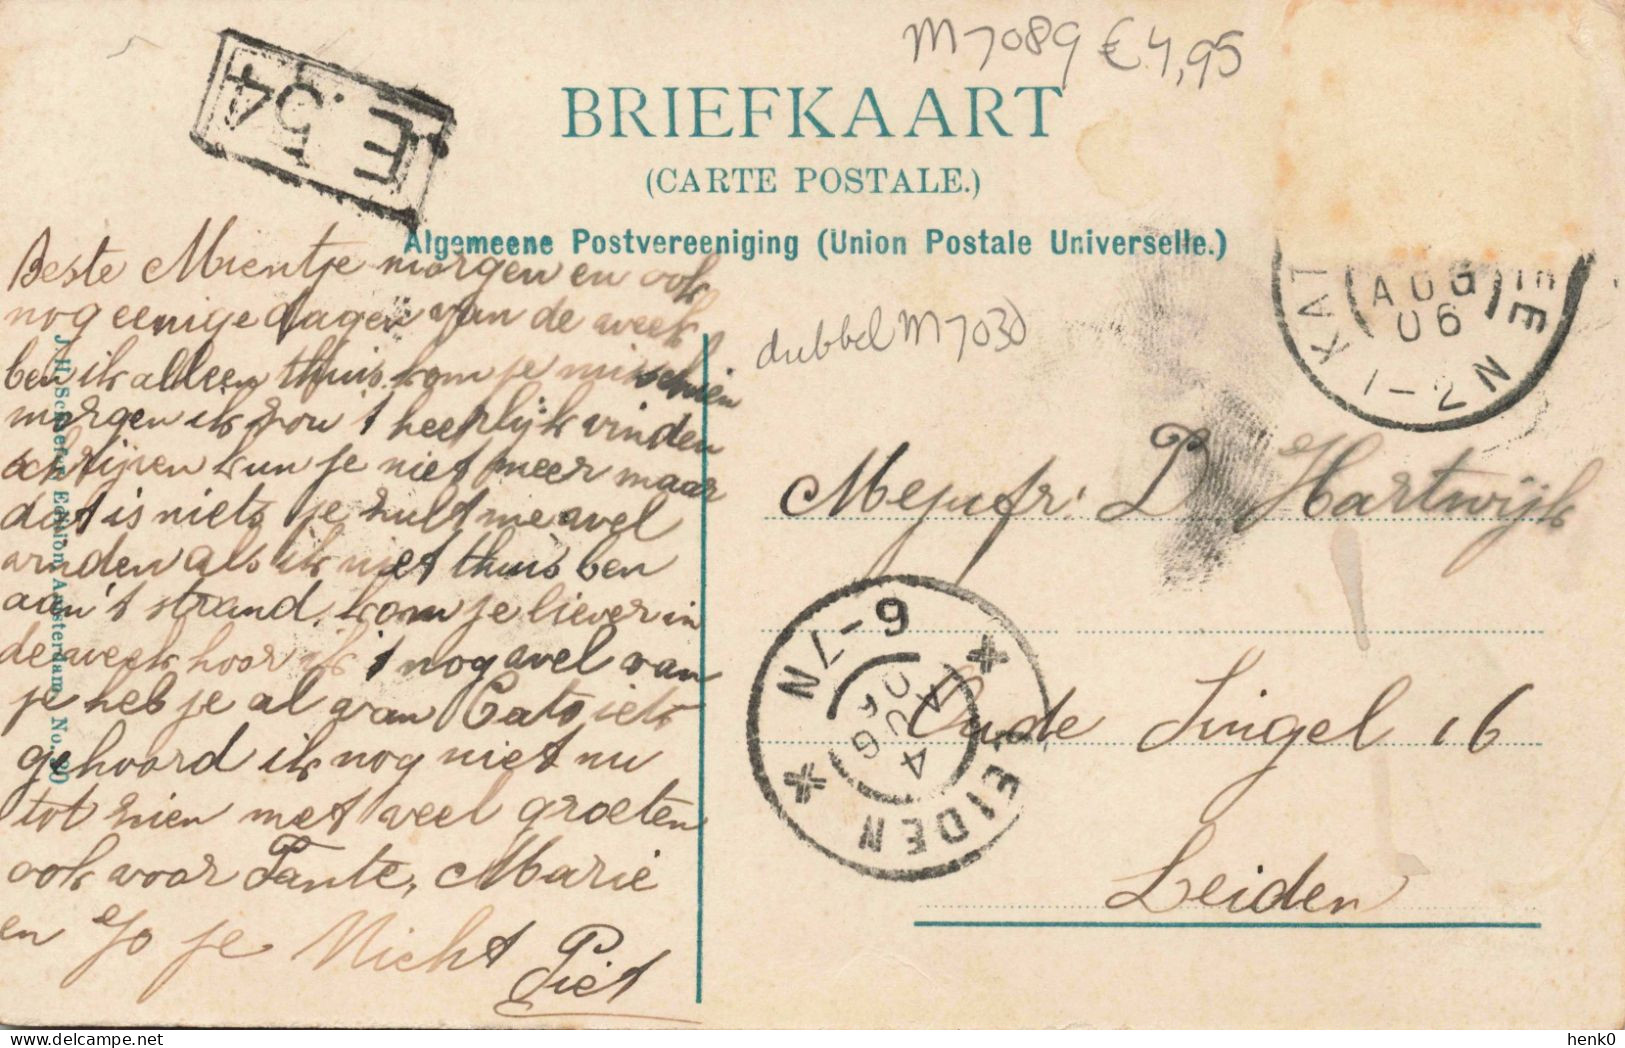 M 7089 € 4,95
E.54
BRIEFKAART
(CARTE POSTALE.)
Algemeene Postvereeniging (Union Postale Universelle.)
Beste Mientje morgen en ook
nog eenige dagen van de week
ben ik alleen thuis kom je misschien
morgen ik zou 't heerlijk vinden
schrijven kun je niet meer maar
dat is niets je zult me wel
vinden als ik niet thuis ben
aan 't strand. kom je liever in
de week hoor ik 't nog wel van
je heb je al van Cato iets
gehoord ik nog niet nu
tot zien met veel groeten
ook voor Tante, Marie
en Jo je Nicht Piet
J.H. Schaefer Edition, Amsterdam, No.
dubbel M 7030
KAT
AUG
06
1-2N
Mejufr: D Hartwijk
Oude Singel 16
Leiden
LEIDEN
6-7N
4 AUG
henk0